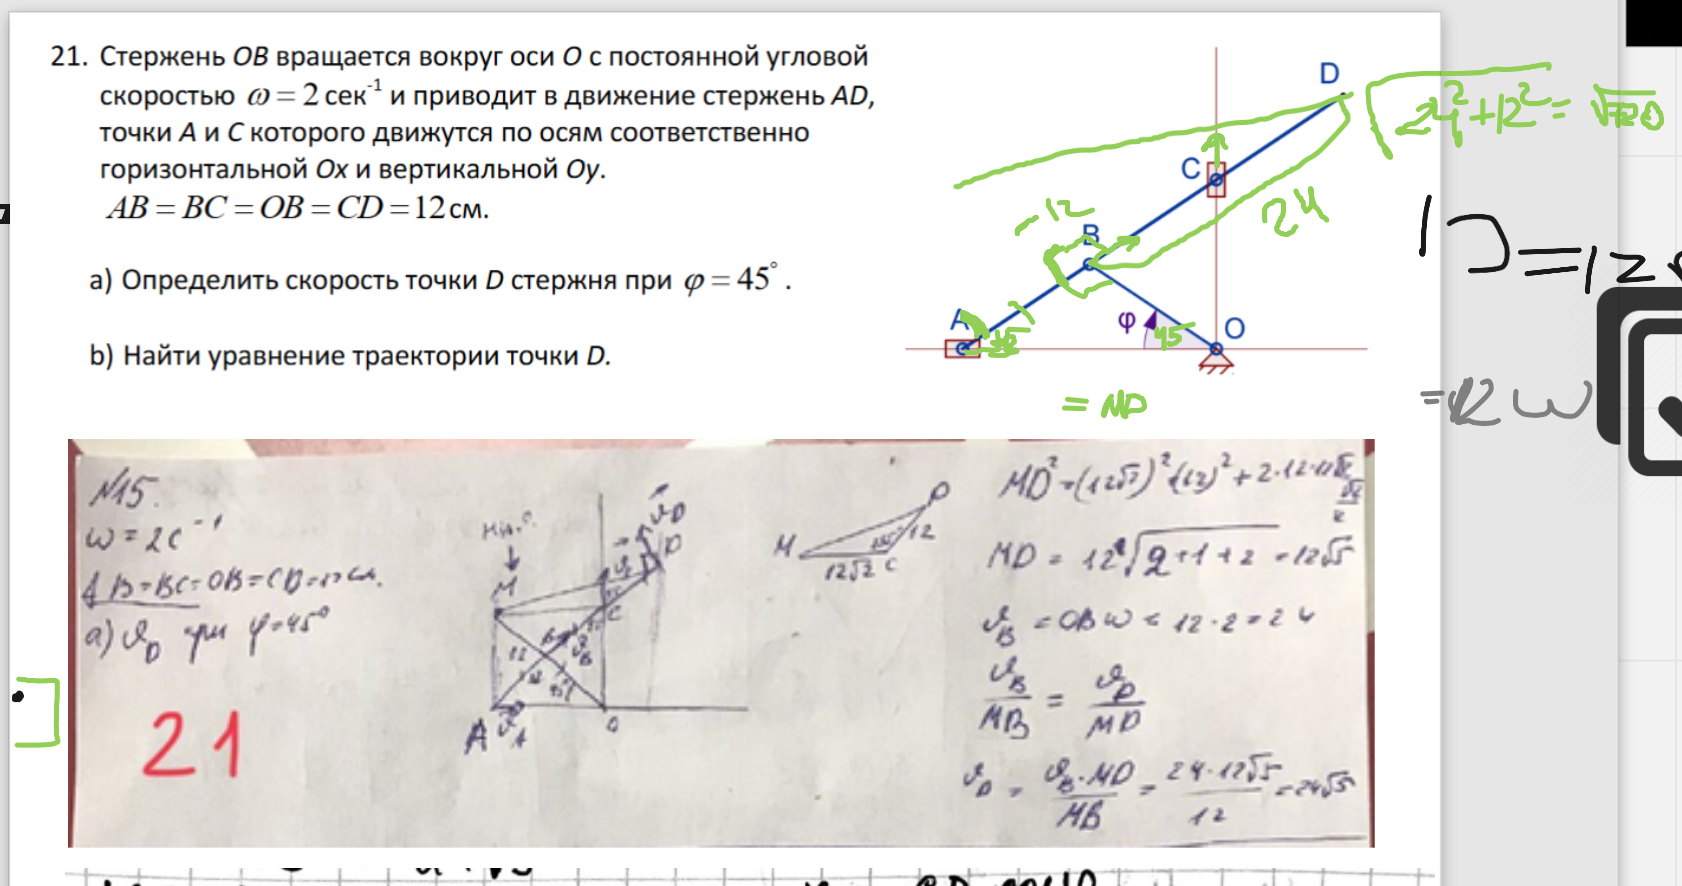 21. Стержень OB вращается вокруг оси O с постоянной угловой
скоростью ω = 2 сек⁻¹ и приводит в движение стержень AD,
точки A и C которого движутся по осям соответственно
горизонтальной Ox и вертикальной Oy.
AB = BC = OB = CD = 12 см.
a) Определить скорость точки D стержня при φ = 45°.
b) Найти уравнение траектории точки D.
D
C
B
A
φ
O
12
24
45
45
√24²+12² = √720
= MD
= 12
= 12 ω
№15.
ω = 2c⁻¹
AB=BC=OB=CD=12см.
а) υD при φ=45°
21
M
D
C
B
A
O
12
45°
υD
υB
υA
M
D
12
12√2 C
MD = 12√2+1+2 = 12√5
υB = OBω = 12·2=24
υB/MB = υD/MD
υD = υB·MD/MB = 24·12√5/12 = 24√5